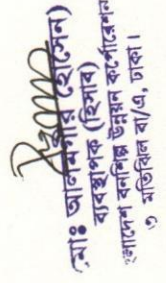 (মোঃ আলমগীর হোসেন)
ব্যবস্থাপক (হিসাব)
বাংলাদেশ বনশিল্প উন্নয়ন কর্পোরেশন
মতিঝিল বা/এ, ঢাকা।